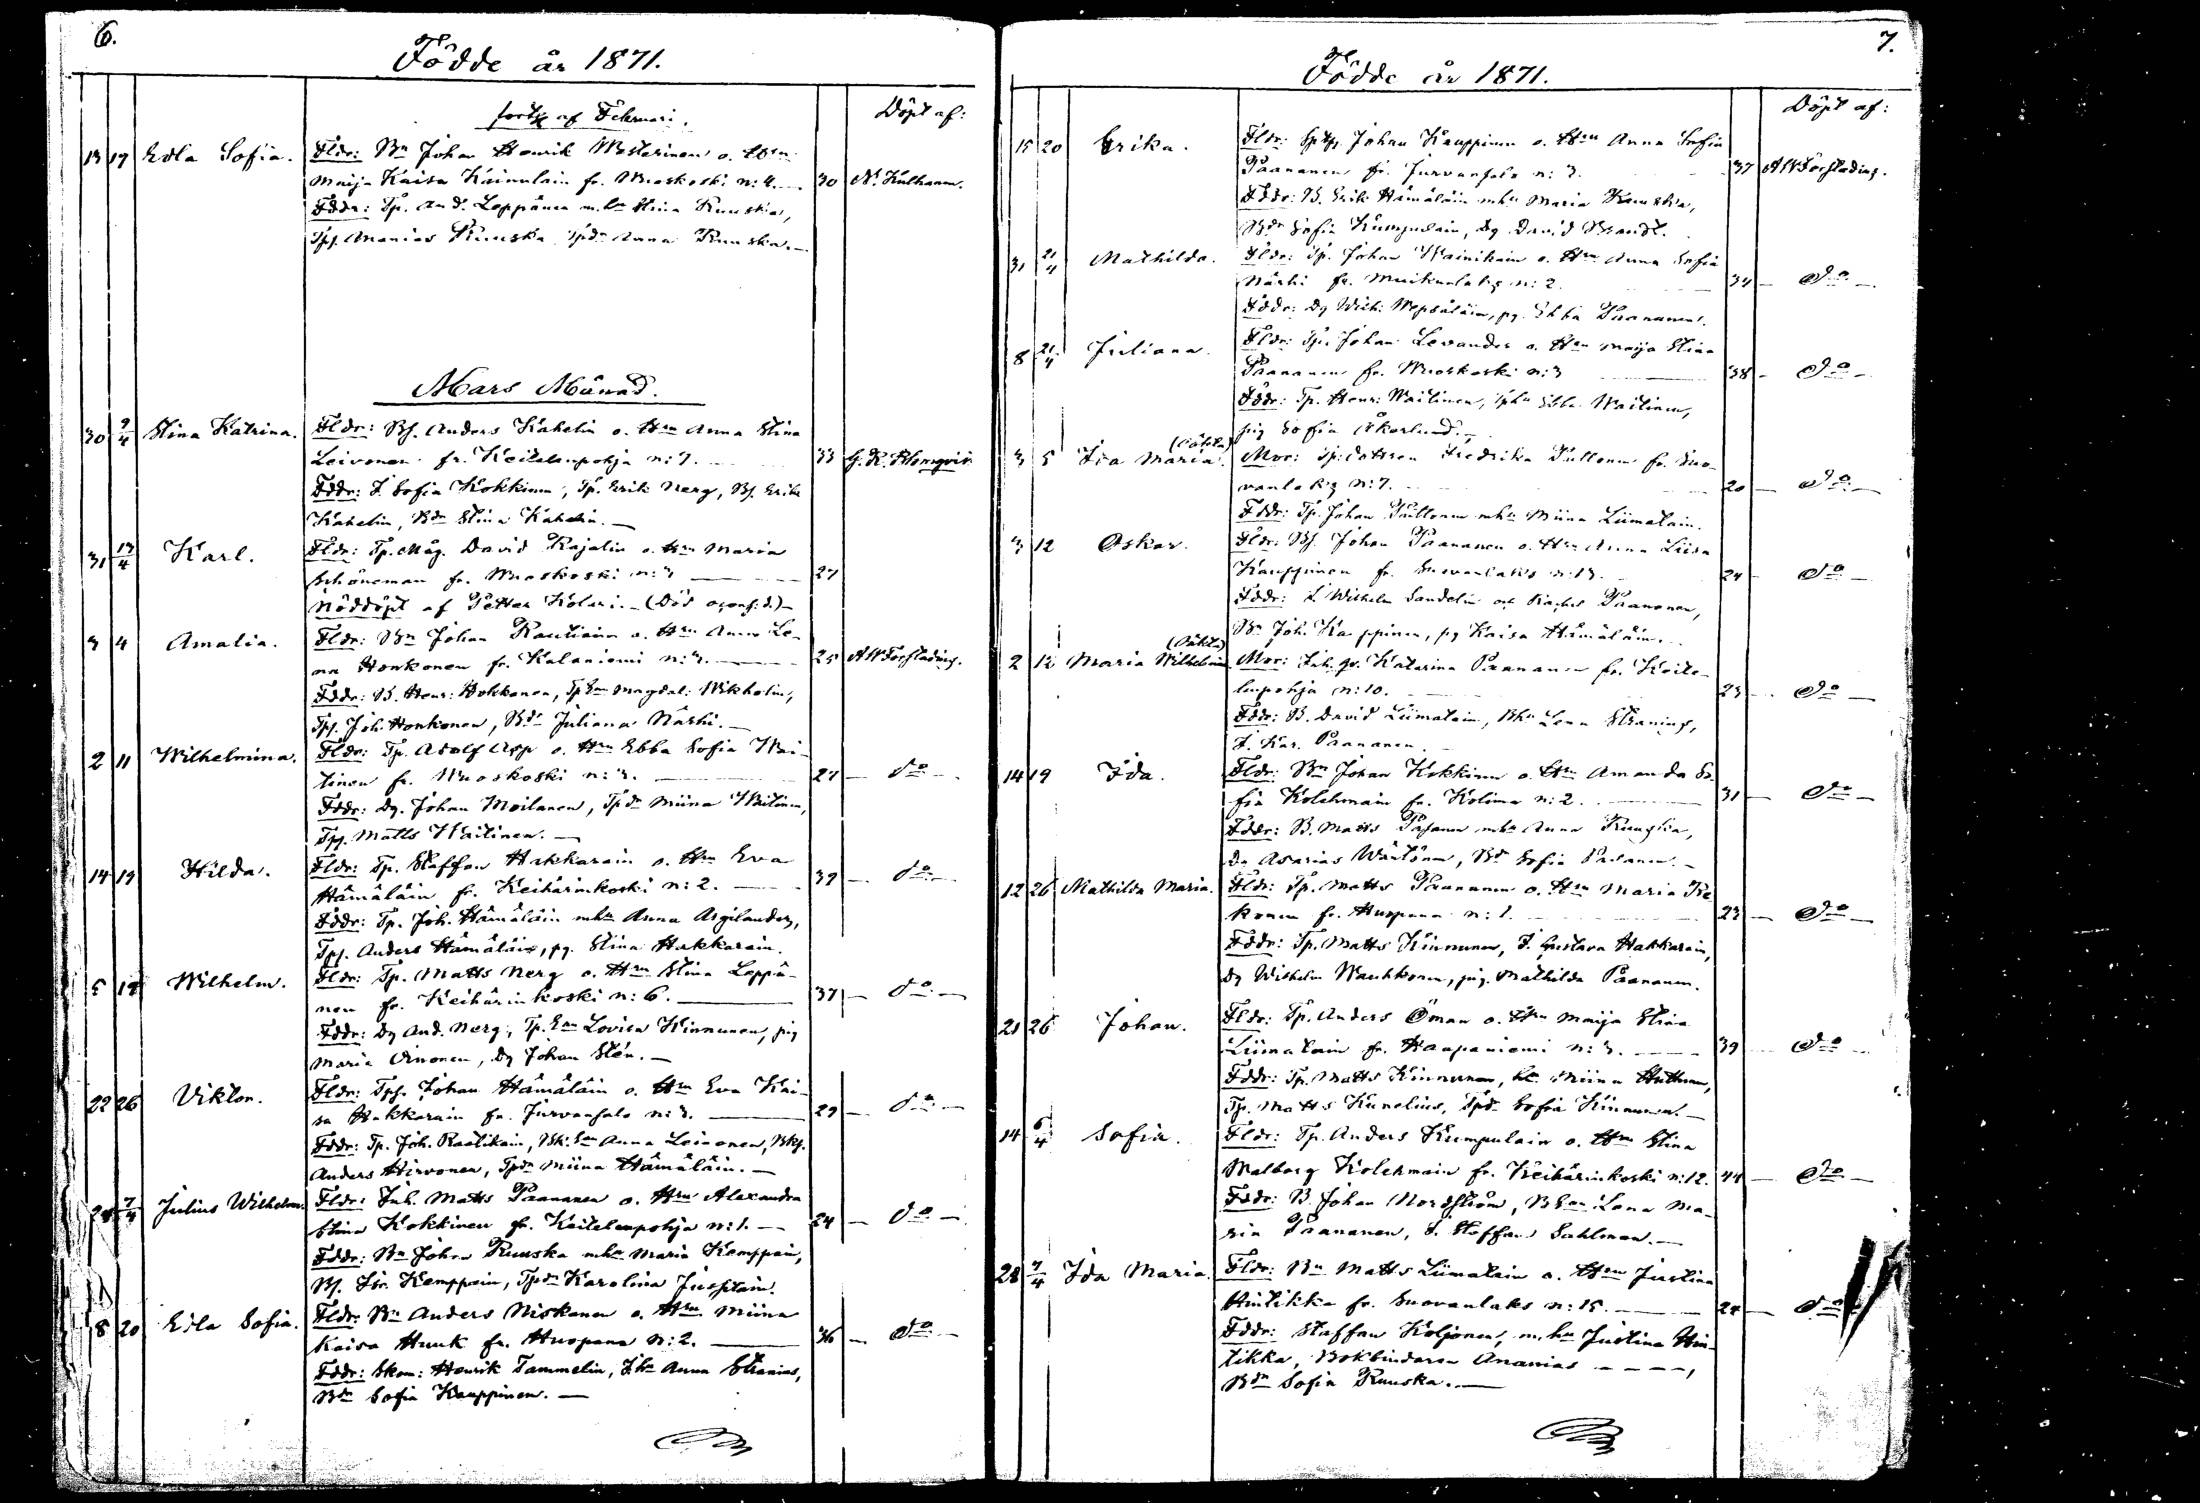 6.
Födde år 1871.
forts. af Februari.
Döpt af:
13 19 Edla Sofia. Fldr: Bn Johan Henrik Westerinen o. Hm
Maija Kaisa Kainulain fr. Wuoskoski n:4. 30
Fddr: Tp. And. Leppänen m. hu Stina Ruuska,
Tpj. Ananias Ruuska, Tpdr Anna Ruuska.
Mars Månad.
30 9/4 Stina Katrina. Fldr: Bj. Anders Kahelin o. Hm Anna Stina
Leivonen fr. Keitelenpohja n:7. 33 G. R. Blomqvist
Fddr: I. Sofia Kokkinen, Tp. Erik Nerg, Bj. Erik
Kahelin, Bdr Stina Kahelin.
31 13/4 Karl. Fldr: Tp. Måg. David Rajalin o. Hm Maria
Schöneman fr. Wuoskoski n:3 27
Nöddöpt af Petter Kolari.
3 4 Amalia. Fldr: Bn Johan Rautiain o. Hm Anna Le-
na Honkonen fr. Kalaniemi n:3. 25 A W Forssladius.
Fddr: B. Henr: Hokkanen, Tp Em Magdal: Wikholm,
Tpj. Joh. Honkonen, Bdr Juliana Närhi.
2 11 Wilhelmina. Fldr: Tp. Adolf Asp o. Hm Ebba Sofia Wai-
tinen fr. Wuoskoski n:3. 27 — do —
Fddr: Dg. Johan Moilanen, Tpdr Miina Waitinen,
Tpj. Matts Waitinen.
14 19 Hilda. Fldr: Tp. Staffan Hakkarain o. Hm Eva
Hämäläin fr. Keihärinkoski n:2. 39 — do —
Fddr: Tp. Joh. Hämäläin mhu Anna Argilander,
Tpj. Anders Hämäläin, pg. Stina Hakkarain.
5 19 Wilhelm. Fldr: Tp. Matts Nerg o. Hm Stina Leppä-
nen fr. Keihärinkoski n:6. 37 — do —
Fddr: Dg And. Nerg, Tp. Em Lovisa Kinnunen, pig
Maria Oinonen, Dg Johan Stén.
22 26 Viktor. Fldr: Tpj. Johan Hämäläin o. Hm Eva Kai-
sa Hakkarain fr. Jurvansalo n:3. 29 — do —
Fddr: Tp. Joh. Raatikain, Bk. Em Anna Leivonen, Bkj.
Anders Hirvonen, Tpdr Miina Hämäläin.
24 7/4 Julius Wilhelm. Fldr: Inh. Matts Paananen o. Hm Alexandra
Stina Kokkinen fr. Keitelenpohja n:1. 24 — do —
Fddr: Bn Johan Ruuska mhu Maria Kemppain,
Bj. Isr. Kemppain, Tpdr Karolina
8 20 Edla Sofia. Fldr: Bn Anders Niskanen o. Hm Miina
Kaisa Hunk fr. Huopana n:2. 36 — do —
Fddr: Skom: Henrik Tammelin, Ihu Anna Stranius,
Bdr Sofia Kauppinen.
7.
Födde år 1871.
Döpt af:
15 20 Erika. Fldr: Johan Kauppinen o. Hm Anna Sofia
Paananen fr. Jurvansalo n:3. 37 A W Forssladius.
Fddr: B. Erik Hämäläin mhu Maria Ruuska,
Bdr Sofia Kumpulain, Dg David Brandt.
31 21/4 Mathilda. Fldr: Tp. Johan Wainikain o. Hm Anna Sofia
Närhi fr. n:2. 34 — do —
Fddr: Dg Wilh: Wepsäläin, pg. Ebba Paananen.
8 21/4 Juliana. Fldr: Tp. Johan Levander o. Hm Maija Stina
Paananen fr. Wuoskoski n:3 38 — do —
Fddr: Tp. Henr: Waitinen, Tphu Ebba Waitinen,
pig Sofia Åkerlund.
3 5 Ida Maria. (oäkta) Mor: Tp: dottren Fredrika Puttonen fr. Suo-
vanlaks n:7. 20 — do —
Fddr: Tp. Johan Puttonen mhu Miina Liimatain.
3 12 Oskar. Fldr: Bj. Johan Paananen o. Hm Anna Liisa
Kauppinen fr. Suovanlaks n:13. 24 — do —
Fddr: I. Wilhelm Sandelin och Rachel Paananen,
Bn Joh. Kauppinen, pg Kaisa Hämäläin.
2 12 Maria Wilhelmina (oäkta) Mor: Inh. qv. Katarina Paananen fr. Keite-
lenpohja n:10. 23 — do —
Fddr: B. David Liimatain, Bhu Lena Stranius,
I. Kar. Paananen.
14 19 Ida. Fldr: Bn Johan Kokkinen o. Hm Amanda So-
fia Kolehmain fr. Kolima n:2. 31 — do —
Fddr: B. Matts Pasanen mhu Anna
Dg Asarias Wäntänen, Bdr Sofia Pasanen.
12 26 Mathilda Maria. Fldr: Tp. Matts Paananen o. Hm Maria Ke-
konen fr. Huopana n:1. 23 — do —
Fddr: Tp. Matts Kinnunen, I. Gustava Hakkarain,
Dg Wilhelm Wauhkonen, pig. Mathilda Paananen.
21 26 Johan. Fldr: Tp. Anders Öman o. Hm Maija Stina
Liimatain fr. Haapaniemi n:3. 39 — do —
Fddr: Tp. Matts Kinnunen, hu Miina Huttunen,
Tp. Matts Kunelius, Tpdr Sofia Kinnunen.
14 6/4 Sofia. Fldr: Tp. Anders Kumpulain o. Hm Stina
Walborg Kolehmain fr. Keihärinkoski n:12. 44 — do —
Fddr: B. Johan Nordström, B Em Lena Ma-
ria Paananen, I. Staffan Sahlman.
28 7/4 Ida Maria. Fldr: Bn Matts Liimatain o. Hm Justina
Hintikka fr. Suovanlaks n:15. 24 — do
Fddr: Staffan Koljonen, m. hu Justina Hin-
tikka, Bokbindaren Ananias – – – –,
Bdr Sofia Ruuska.